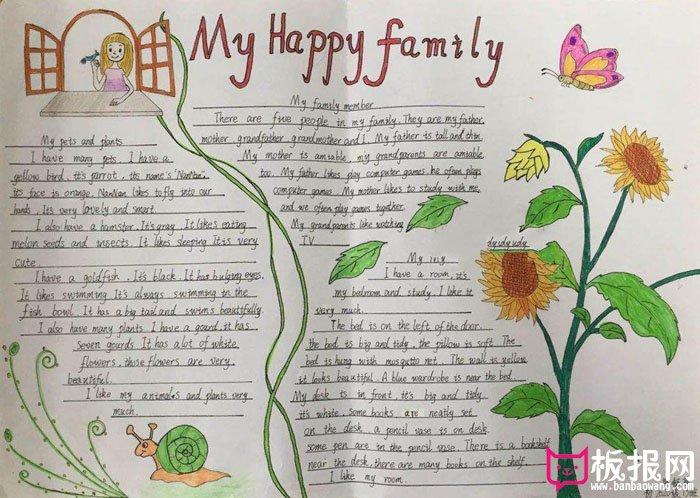 My Happy family
My pets and plants
I have many pets. I have a
yellow bird. it's parrot. it's name's "NanNan".
it's face is orange. NanNan likes to fly into our
hands. It's very lovely and smart.
I also have a hamster. It's gray. It likes eating
melon seeds and insects. It likes sleeping. It is very
cute.
I have a goldfish. It's black. It has bulging eyes.
It likes swimming. It's always swimming in the
fish bowl. It has a big tail and swims beautifully.
I also have many plants. I have a gourd. it has
seven gourds. It has a lot of white
flowers. those flowers are very
beautiful.
I like my animals and plants very
much.
My family member
There are five people in my family. They are my father,
mother, grandfather, grandmother and I. My father is tall and thin.
My mother is amiable, my grandparents are amiable
too. My father likes play computer games. he often plays
computer games. My mother likes to study with me,
and we often play games together.
My grandparents like watching
TV
My
I have a room, it's
my bedroom and study. I like it
very much.
The bed is on the left of the door.
the bed is big and tidy, the pillow is soft. The
bed is hung with mosgutto net. The wall is yellow
it looks beautiful. A blue wardrobe is near the bed.
My desk is in front, it's big and tidy
it's white. some books are neatly set
on the desk. a pencil vase is on desk.
some pen are in the pencil vase. There is a bookshelf
near the desk. there are many books on the shelf.
I like my room.
板报网
www.banbaowang.com